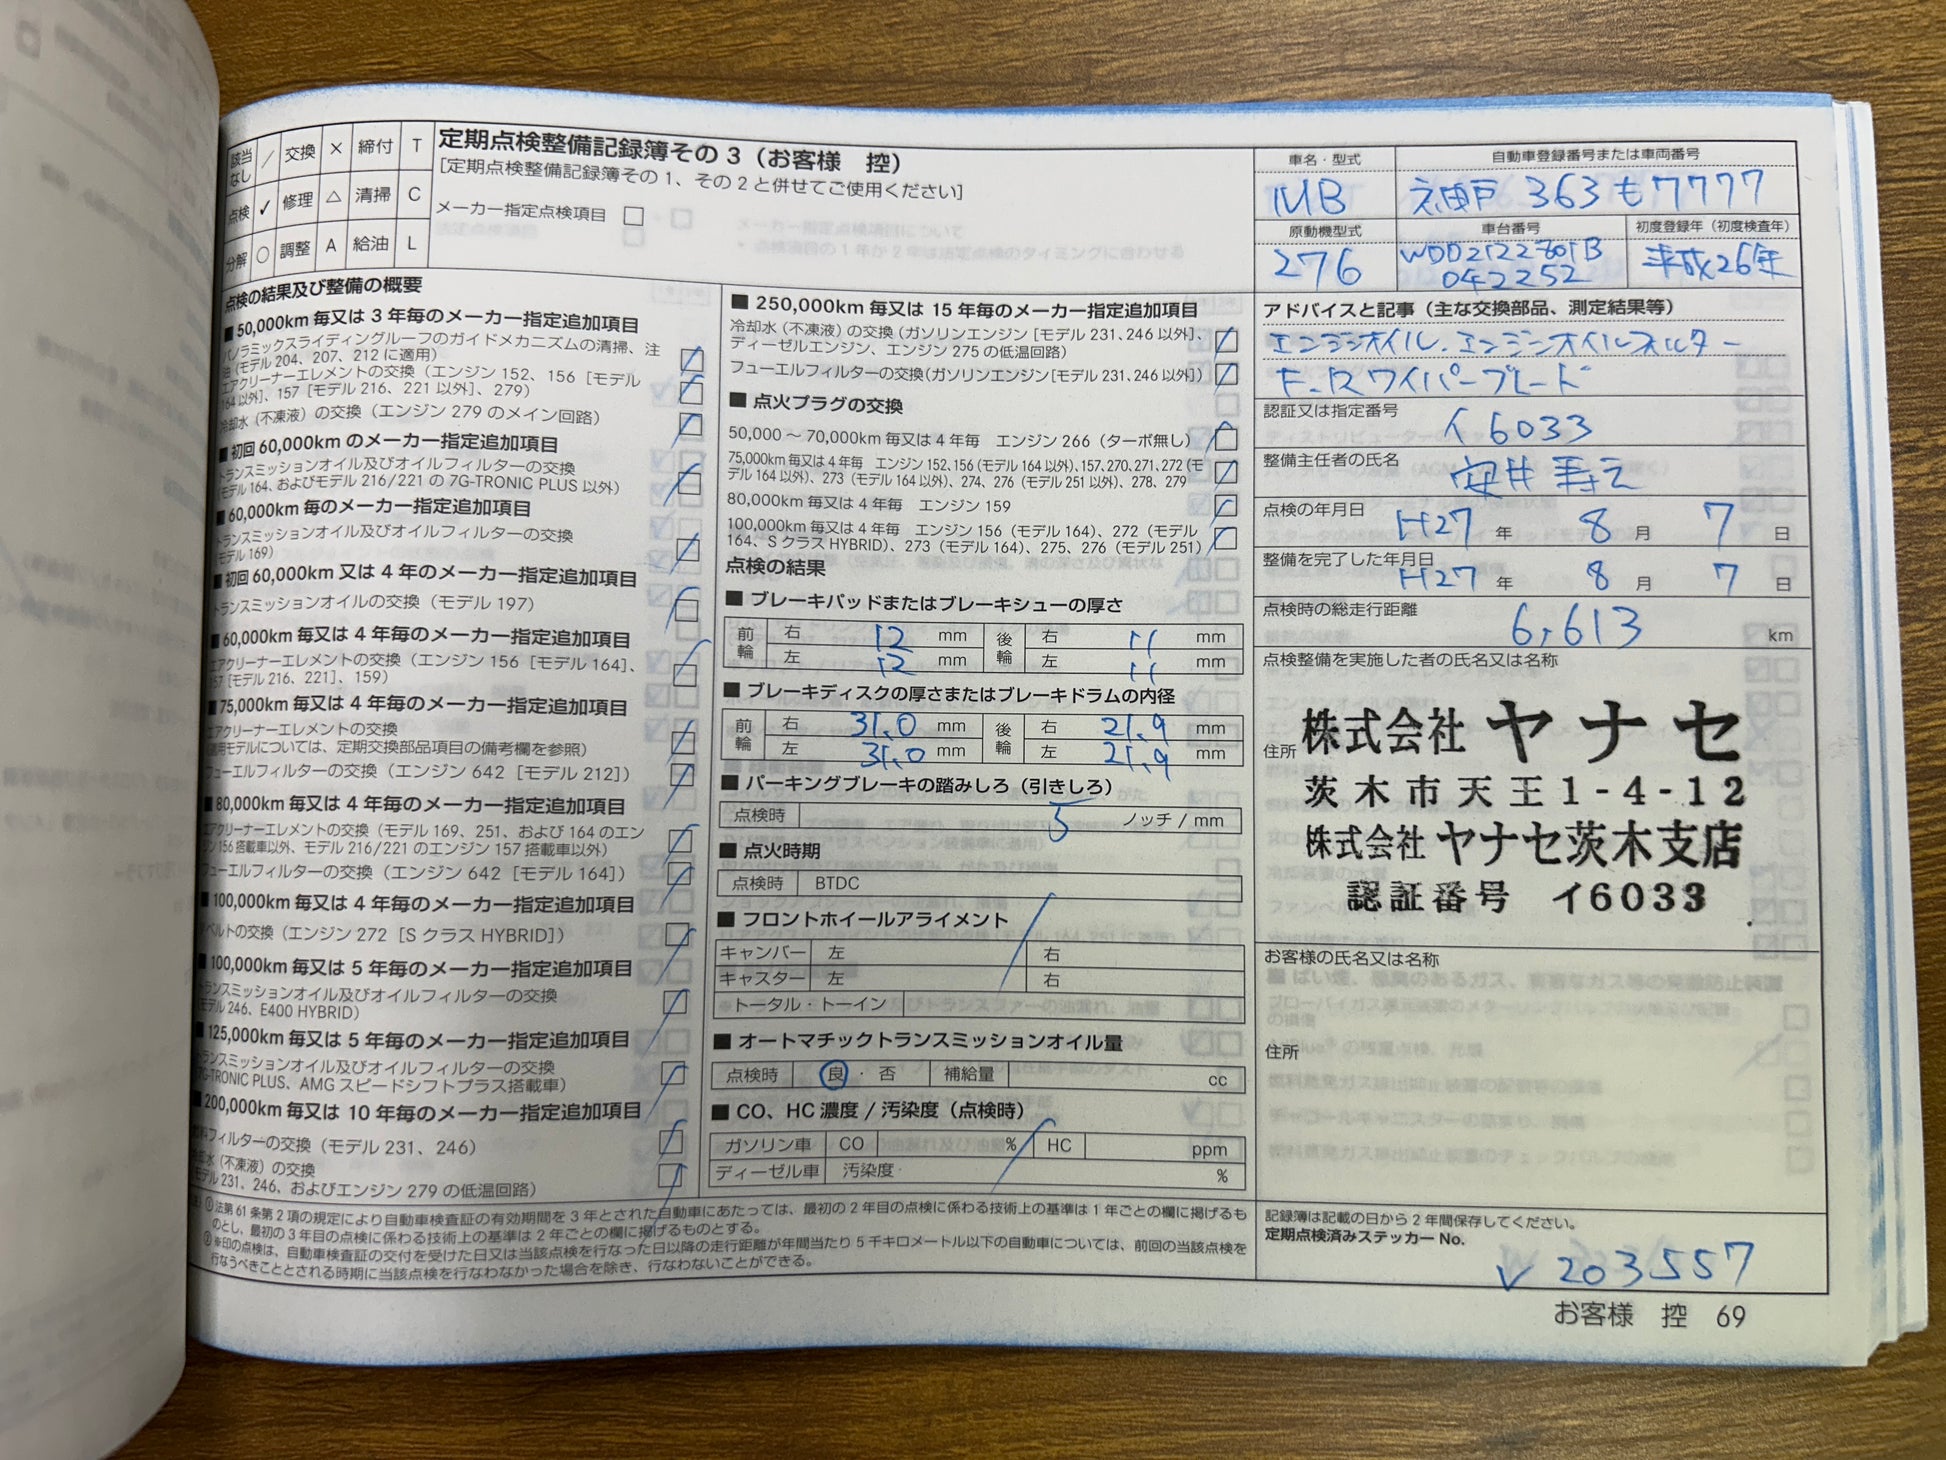 該当なし ／ 交換 × 締付 T
点検 ✓ 修理 △ 清掃 C
分解 ○ 調整 A 給油 L
定期点検整備記録簿その3（お客様　控）
［定期点検整備記録簿その1、その2と併せてご使用ください］
メーカー指定点検項目 □
点検の結果及び整備の概要
■ 50,000km毎又は3年毎のメーカー指定追加項目
パノラミックスライディングルーフのガイドメカニズムの清掃、注
油（モデル204、207、212に適用）
エアクリーナーエレメントの交換（エンジン152、156［モデル
164以外］、157［モデル216、221以外］、279）
冷却水（不凍液）の交換（エンジン279のメイン回路）
■ 初回60,000kmのメーカー指定追加項目
トランスミッションオイル及びオイルフィルターの交換
（モデル164、およびモデル216/221の7G-TRONIC PLUS以外）
■ 60,000km毎のメーカー指定追加項目
トランスミッションオイル及びオイルフィルターの交換
（モデル169）
■ 初回60,000km又は4年のメーカー指定追加項目
トランスミッションオイルの交換（モデル197）
■ 60,000km毎又は4年毎のメーカー指定追加項目
エアクリーナーエレメントの交換（エンジン156［モデル164］、
157［モデル216、221］、159）
■ 75,000km毎又は4年毎のメーカー指定追加項目
エアクリーナーエレメントの交換
（適用モデルについては、定期交換部品項目の備考欄を参照）
フューエルフィルターの交換（エンジン642［モデル212］）
■ 80,000km毎又は4年毎のメーカー指定追加項目
エアクリーナーエレメントの交換（モデル169、251、および164のエン
ジン156搭載車以外、モデル216/221のエンジン157搭載車以外）
フューエルフィルターの交換（エンジン642［モデル164］）
■ 100,000km毎又は4年毎のメーカー指定追加項目
Vベルトの交換（エンジン272［SクラスHYBRID］）
■ 100,000km毎又は5年毎のメーカー指定追加項目
トランスミッションオイル及びオイルフィルターの交換
（モデル246、E400 HYBRID）
■ 125,000km毎又は5年毎のメーカー指定追加項目
トランスミッションオイル及びオイルフィルターの交換
（7G-TRONIC PLUS、AMGスピードシフトプラス搭載車）
■ 200,000km毎又は10年毎のメーカー指定追加項目
燃料フィルターの交換（モデル231、246）
冷却水（不凍液）の交換
（モデル231、246、およびエンジン279の低温回路）
■ 250,000km毎又は15年毎のメーカー指定追加項目
冷却水（不凍液）の交換（ガソリンエンジン［モデル231、246以外］、
ディーゼルエンジン、エンジン275の低温回路）
フューエルフィルターの交換（ガソリンエンジン［モデル231、246以外］）
■ 点火プラグの交換
50,000～70,000km毎又は4年毎　エンジン266（ターボ無し）
75,000km毎又は4年毎　エンジン152、156（モデル164以外）、157、270、271、272（モ
デル164以外）、273（モデル164以外）、274、276（モデル251以外）、278、279
80,000km毎又は4年毎　エンジン159
100,000km毎又は4年毎　エンジン156（モデル164）、272（モデル
164、SクラスHYBRID）、273（モデル164）、275、276（モデル251）
点検の結果
■ ブレーキパッドまたはブレーキシューの厚さ
前輪 右 12 mm 後輪 右 11 mm
左 12 mm 左 11 mm
■ ブレーキディスクの厚さまたはブレーキドラムの内径
前輪 右 31.0 mm 後輪 右 21.9 mm
左 31.0 mm 左 21.9 mm
■ パーキングブレーキの踏みしろ（引きしろ）
点検時 5 ノッチ / mm
■ 点火時期
点検時 BTDC
■ フロントホイールアライメント
キャンバー 左 右
キャスター 左 右
トータル・トーイン
■ オートマチックトランスミッションオイル量
点検時 良・否 補給量 cc
■ CO、HC濃度 / 汚染度（点検時）
ガソリン車 CO % HC ppm
ディーゼル車 汚染度 %
①法第61条第2項の規定により自動車検査証の有効期間を3年とされた自動車にあたっては、最初の2年目の点検に係わる技術上の基準は1年ごとの欄に掲げるも
のとし、最初の3年目の点検に係わる技術上の基準は2年ごとの欄に掲げるものとする。
②※印の点検は、自動車検査証の交付を受けた日又は当該点検を行なった日以降の走行距離が年間当たり5千キロメートル以下の自動車については、前回の当該点検を
行なうべきこととされる時期に当該点検を行なわなかった場合を除き、行なわないことができる。
車名・型式 自動車登録番号または車両番号
MB 神戸 363 も 7777
原動機型式 車台番号 初度登録年（初度検査年）
276 WDD2122801B 平成26年
042252
アドバイスと記事（主な交換部品、測定結果等）
エンジンオイル．エンジンオイルフィルター
F.Rワイパーブレード
認証又は指定番号
イ 6033
整備主任者の氏名
安井寿之
点検の年月日 H27 年 8 月 7 日
整備を完了した年月日 H27 年 8 月 7 日
点検時の総走行距離
6,613 km
点検整備を実施した者の氏名又は名称
住所 株式会社 ヤナセ
茨木市天王1-4-12
株式会社 ヤナセ茨木支店
認証番号 イ6033
お客様の氏名又は名称
住所
記録簿は記載の日から2年間保存してください。
定期点検済みステッカーNo.
V 203557
お客様　控　69